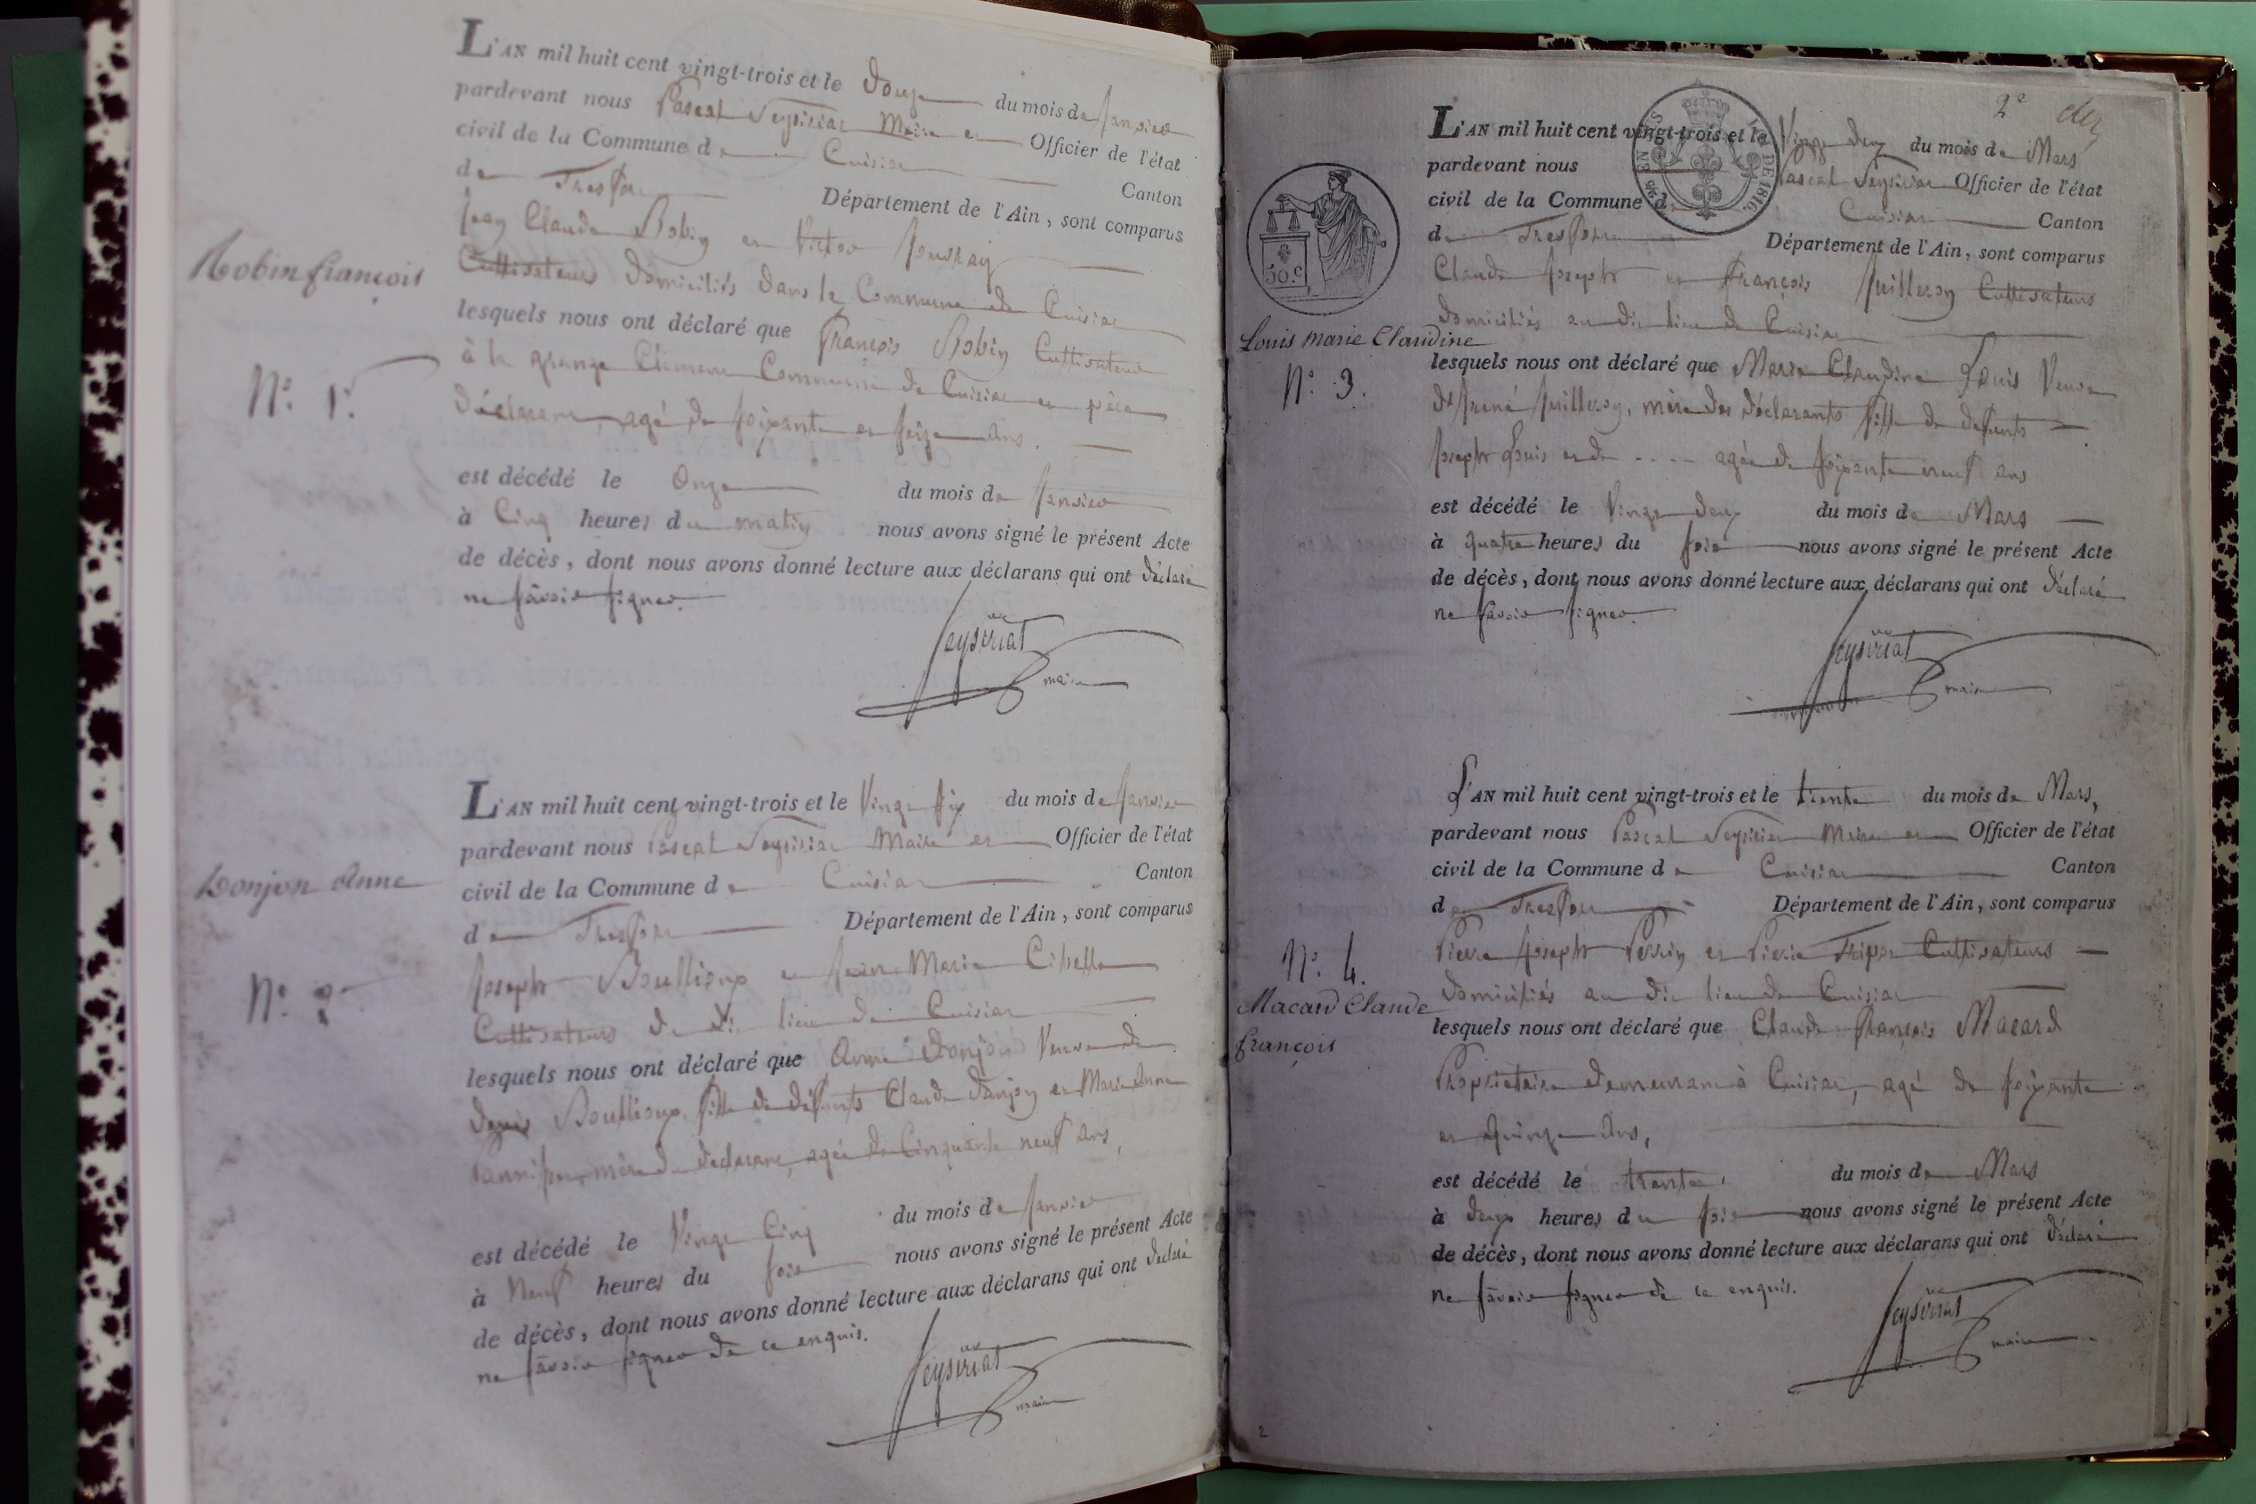 L'AN mil huit cent vingt-trois et le douze du mois de janvier
pardevant nous Pascal Seysiriat Maire et Officier de l'état
civil de la Commune de Cuisiat Canton
de Treffort Département de l'Ain, sont comparus
Jean Claude Robin et Victor
Cultivateurs domiciliés dans la Commune de Cuisiat
lesquels nous ont déclaré que François Robin Cultivateur
à la grange Commune de Cuisiat et père
déclarant, agé de soixante et seize ans.
est décédé le onze du mois de janvier
à Cinq heures du matin nous avons signé le présent Acte
de décès, dont nous avons donné lecture aux déclarans qui ont déclaré
ne savoir signer.
Seysiriat
maire
Robin françois
N.º 1.er
L'AN mil huit cent vingt-trois et le vingt six du mois de janvier
pardevant nous Pascal Seysiriat Maire et Officier de l'état
civil de la Commune de Cuisiat Canton
de Treffort Département de l'Ain, sont comparus
Joseph Boullioux et Marie Cibelle
Cultivateurs du dit lieu de Cuisiat
lesquels nous ont déclaré que Anne Donjon Veuve de
denis Boullioux fille de défunts Claude Donjon et Marie Anne
mère du déclarant, agée de Cinquante neuf ans,
est décédé le vingt Cinq du mois de janvier
à Neuf heures du soir nous avons signé le présent Acte
de décès, dont nous avons donné lecture aux déclarans qui ont déclaré
ne savoir signer de ce enquis.
Seysiriat
maire
Donjon Anne
N.º 2
2e
L'AN mil huit cent vingt-trois et le Vingt deux du mois de Mars
pardevant nous Pascal Seysiriat Officier de l'état
civil de la Commune de Cuisiat Canton
de Treffort Département de l'Ain, sont comparus
Claude Joseph et François Juilleron Cultivateurs
domiciliés au dit lieu de Cuisiat
lesquels nous ont déclaré que Marie Claudine Louis Veuve
Juilleron, mère des déclarants fille de défunts
Joseph Louis et de .... agée de soixante neuf ans
est décédé le Vingt deux du mois de Mars
à quatre heures du soir nous avons signé le présent Acte
de décès, dont nous avons donné lecture aux déclarans qui ont déclaré
ne savoir signer.
Seysiriat
maire
50.c
DE 1816.
Louis marie Claudine
N.º 3.
L'AN mil huit cent vingt-trois et le trente du mois de Mars,
pardevant nous Pascal Seysiriat Maire et Officier de l'état
civil de la Commune de Cuisiat Canton
de Treffort Département de l'Ain, sont comparus
Pierre Joseph Perrin et Pierre Tripoz Cultivateurs
domiciliés au dit lieu de Cuisiat
lesquels nous ont déclaré que Claude François Macard
Propriétaire demeurant à Cuisiat, agé de soixante
et quinze ans,
est décédé le trente du mois de Mars
à deux heures du soir nous avons signé le présent Acte
de décès, dont nous avons donné lecture aux déclarans qui ont déclaré
ne savoir signer de ce enquis.
Seysiriat
maire
N.º 4.
Macard Claude
françois
2